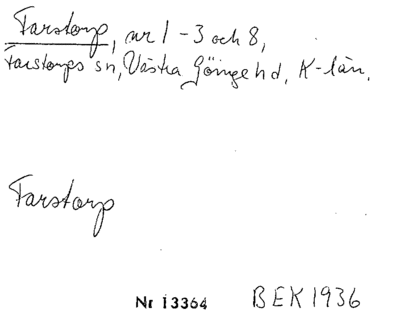 Farstorp, nr 1-3 och 8,
Farstorps sn, Västra Göinge hd, K-län.
Farstorp
Nr 13364 BEK 1936